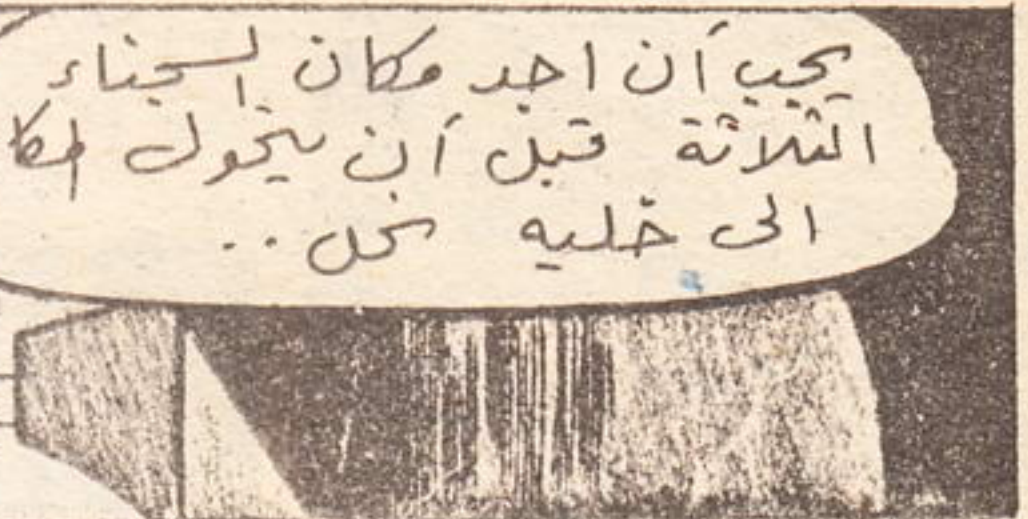 يجب أن اجد مكان السجناء
الثلاثة قبل أن يتحول المكا
الى خليه نحل ..